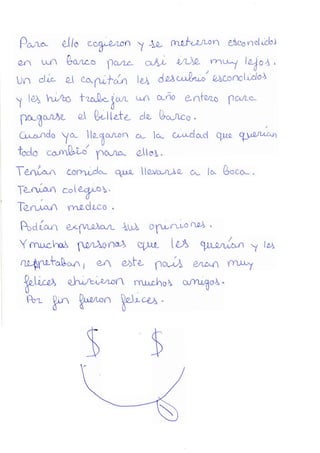 Para ello cogieron y se metieron escondidos
en un barco para asi irse muy lejos.
Un día el capitán les descubrió escondidos
y les hizo trabajar un año entero para
pagarse el billete de barco.
Cuando ya llegaron a la ciudad que querian
todo cambió para ellos.
Tenían comida que llevarse a la boca.
Tenian colegios.
Tenian medico.
Podían expresar sus opiniones.
Y muchas personas que les querían y les
respetaban, en este país eran muy
felices e hicieron muchos amigos.
Por fin fueron felices.
$ $